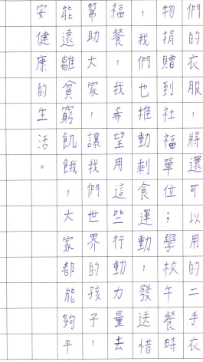 們的衣服，將還可以用的二手衣
物捐贈到社福單位；學校的午餐時
，我們也推動剩食運動，發送惜
福餐，我希望用這些行動力量去
幫助大家，讓我們世界的孩子，
能遠離貧窮飢餓，大家都能夠平
安健康的生活。